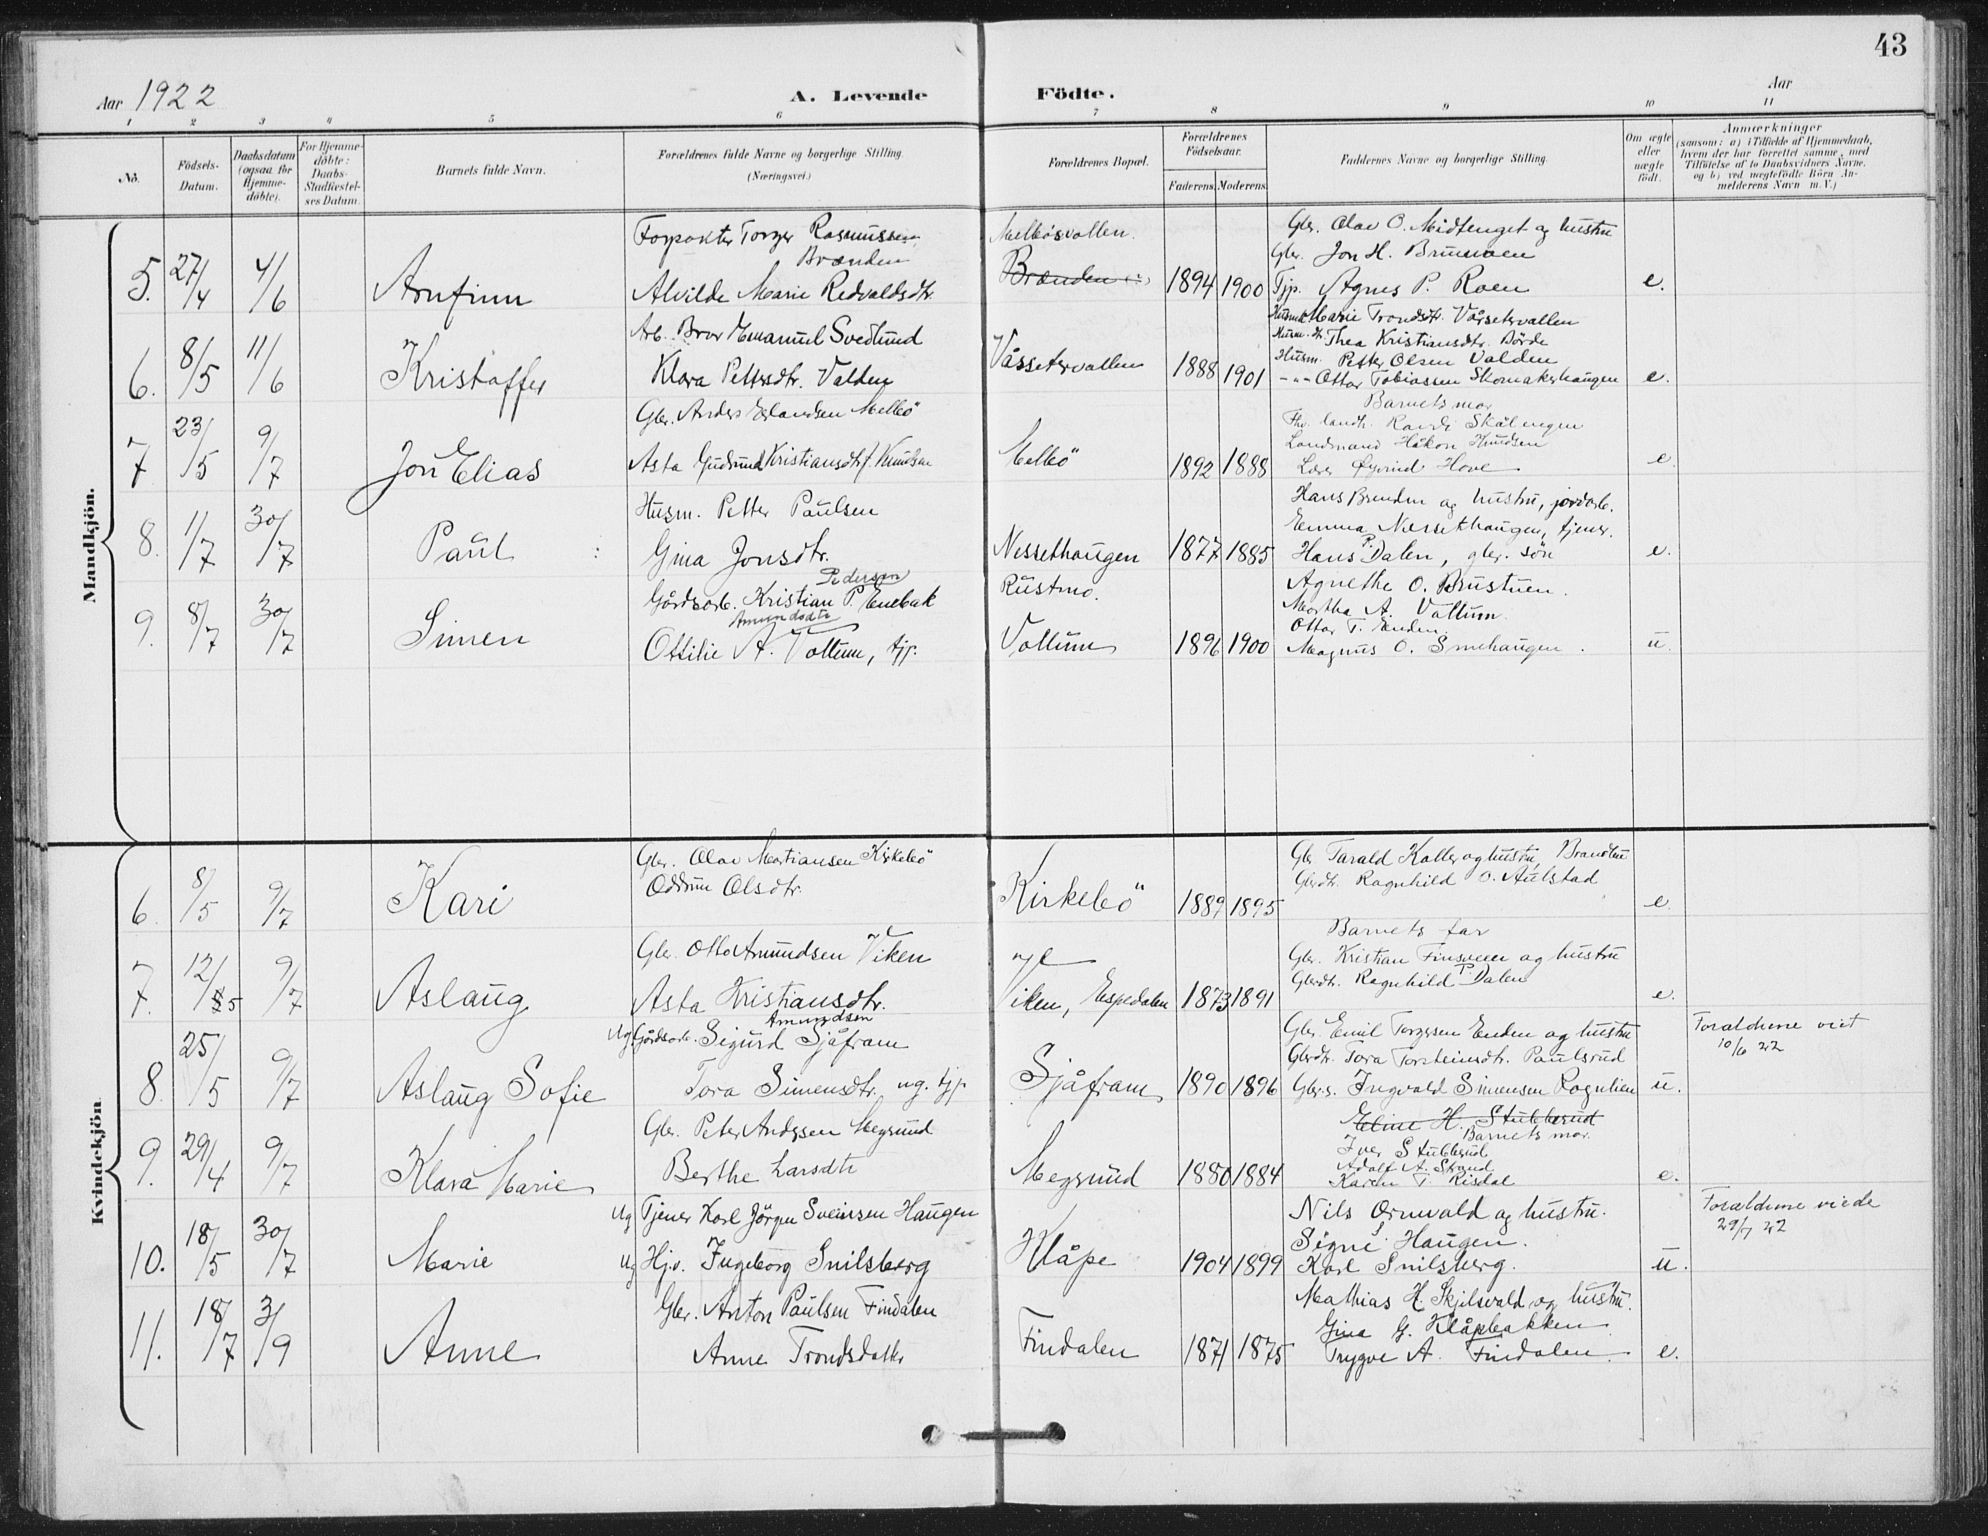 43
Aar 1922
A. Levende Födte.
Aar
1 2 3 4 5 6 7 8 9 10 11
No.
Födsels-
Datum.
Daabsdatum
(ogsaa for
Hjemme-
döbte).
For Hjemme-
döbte:
Daabs-
Stadfæstel-
ses Datum.
Barnets fulde Navn.
Forældrenes fulde Navne og borgerlige Stilling.
(Næringsvei.)
Forældrenes Bopæl.
Forældrenes
Födselsaar.
Faderens. Moderens.
Faddernes Navne og borgerlige Stilling.
Om ægte
eller
uægte
födt.
Anmærkninger
(saasom: a) i Tilfælde af Hjemmedaab,
hvem der har forrettet samme, med
Tilföielse af to Daabsvidners Navne,
og b) ved uægtefödte Börn An-
melderens Navn m. V.)
Mandkjön.
5. 27/4 4/6 Arnfinn
Forpakter Torger Rasmussen
Brænden
Alvilde Marie Redvaldsdtr.
Melbösvollen.
Brænden
1894 1900
Gbr. Olav O. Midtenget og hustru
Gbr. Jon H. Brumoen
Tjp. Agnes P. Roen
e.
6. 8/5 11/6 Kristoffer
Arb. Bror Emanuel Svedlund
Klara Pettersdtr. Valden
Våssetervollen
1888 1901
Marie Trondsdtr. Vårsetervallen
Thea Kristiansdtr. Börde
Husm. Petter Olsen Valden
-"- Ottar Tobiassen Skomakerhaugen
e.
7. 23/5 9/7 Jon Elias
Gbr. Anders Erlandsen Melbö
Asta Gudrund Kristiansdtr f. Knudsen
Melbö
1892 1888
Barnets mor
Landmand Håkon Knudsen
Lærer Øyvind Hove
e.
8. 11/7 30/7 Paul
Husm. Petter Paulsen
Gina Jonsdtr.
Nessethaugen
1877 1885
Hans Brenden og hustru, jordarb.
Emma Nessethaugen, tjener.
Hans P. Dalen, gbr. sön
e.
9. 8/7 30/7 Simen
Pedersen
Gårdsarb. Kristian P. Enebak
Amundsdtr
Ottilie A. Vollum, tjp.
Rustmo.
Vollum
1896 1900
Agnethe O. Brustuen.
Martha A. Vollum.
Ottar T. Enden.
Magnus O. Smehaugen.
u.
Kvindekjön.
6. 8/5 9/7 Kari
Gbr. Olav Martiansen Kirkebö
Oddrun Olsdtr.
Kirkebö
1889 1895
Gbr Tarald Kaller og hustru, Brandtru
Gbrdtr. Ragnhild O. Aulstad
Barnets far
e.
7. 12/5 9/7 Aslaug
Gbr. Otto Amundsen Viken
Asta Kristiansdtr.
Viken, Espedalen
1873 1891
Gbr. Kristian Finsveen og hustru
Gbrdtr. Ragnhild P. Dalen
e.
8. 25/5 9/7 Aslaug Sofie
Amundsen
Ug Gårdsarb. Sigurd Sjåfram
Tora Simensdtr. ug. tjp
Sjåfram
1890 1896
Gbr. Emil Torgersen Enden og hustru
Gbrdtr. Tora Torsteinsdtr. Paulsrud
Gbr.s. Ingvald Simensen Rognlien
u.
Forældrene viet
10/6 22
9. 29/4 9/7 Klara Marie
Gbr. Peter Andersen Megrund
Berthe Larsdtr
Megrund
1880 1884
Eline H. Stubberud
Barnets mor.
Iver Stubberud
Adolf A. Strand
Karen T. Risdal
e.
10. 18/5 30/7 Marie
Ug Tjener Karl Jörgen Sveinsen Haugen
Ug Hj.v. Ingeborg Snilsberg
Klåpe
1904 1899
Nils Ornvald og hustru.
Signe S. Haugen.
Karl Snilsberg.
u.
Forældrene viede
29/7 22
11. 18/7 3/9 Anne
Gbr. Anton Paulsen Findalen
Anne Trondsdatter
Findalen
1871 1875
Mathias H. Skjelsvold og hustru.
Gina G. Klåpbakken
Trygve A. Findalen.
e.